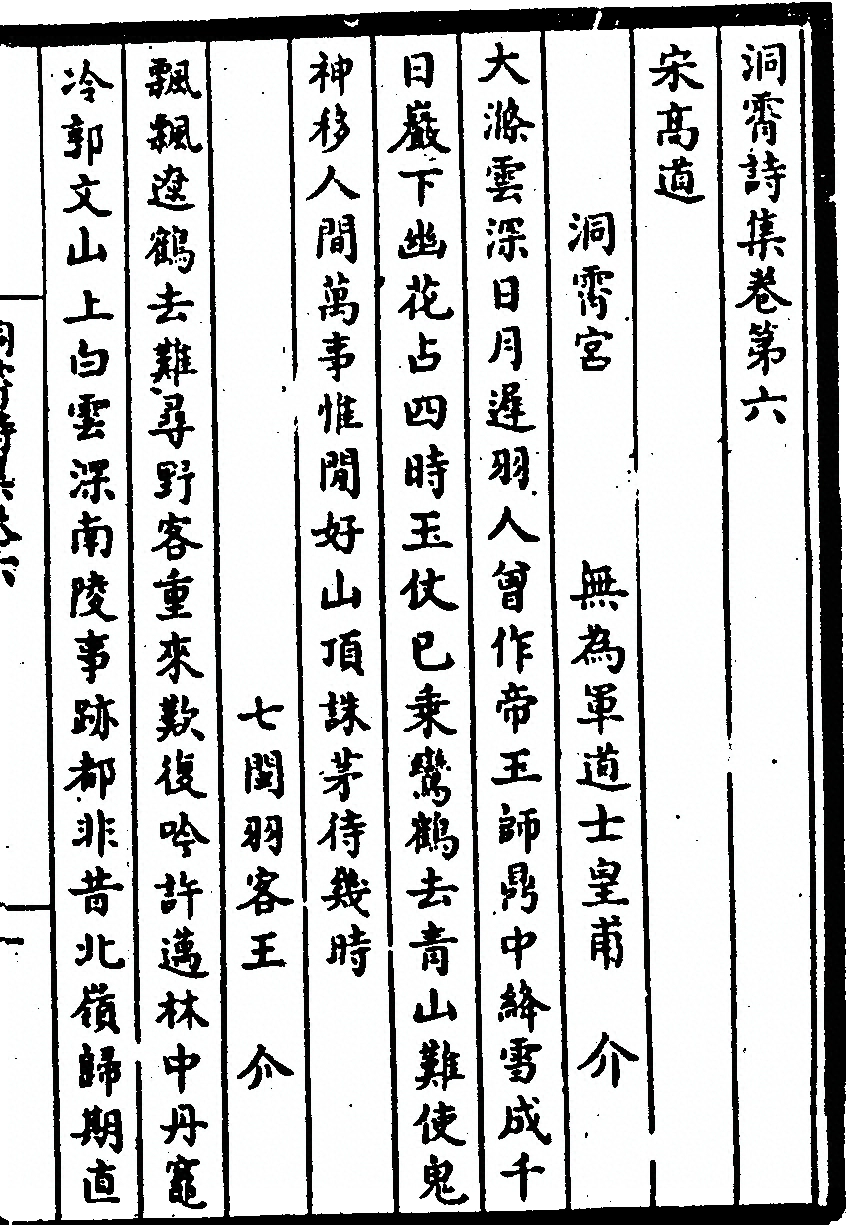 洞霄詩集卷第六
宋高道
洞霄宮 無為軍道士皇甫 介
大滌雲深日月遲羽人曾作帝王師鼎中絳雪成千
日巖下幽花占四時玉仗已乗鸞鶴去青山難使鬼
神移人間萬事惟閒好山頂誅茅待幾時
七閩羽客王 介
飄飄遼鶴去難尋野客重來歎復吟許邁林中丹竈
冷郭文山上白雲深南陵事跡都非昔北嶺歸期直
洞霄詩集卷六
一